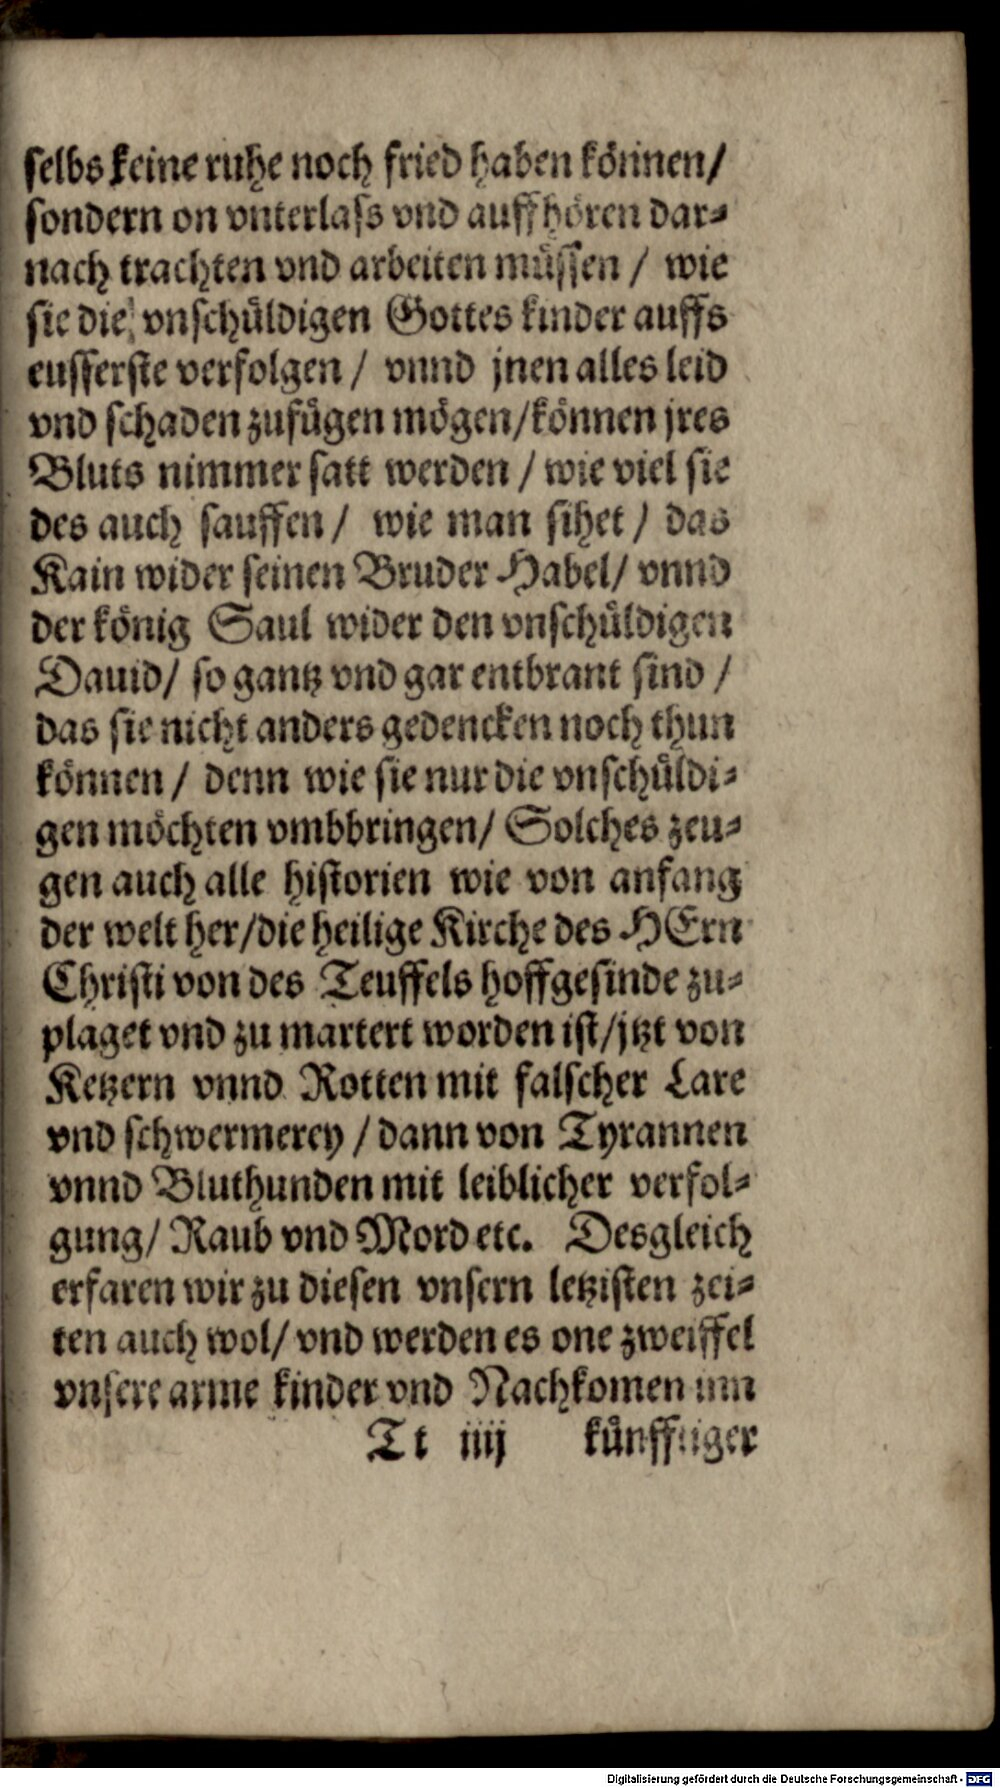 selbs keine ruhe noch fried haben können/
sondern on vnterlass vnd auffhören dar⸗
nach trachten vnd arbeiten müssen / wie
sie die vnschüldigen Gottes kinder auffs
eusserste verfolgen / vnnd jnen alles leid
vnd schaden zufügen mögen/können jres
Bluts nimmer satt werden / wie viel sie
des auch sauffen / wie man sihet / das
Kain wider seinen Bruder Habel/ vnnd
der könig Saul wider den vnschüldigen
Dauid/ so gantz vnd gar entbrant sind /
das sie nicht anders gedencken noch thun
können / denn wie sie nur die vnschüldi⸗
gen möchten vmbbringen/ Solches zeu⸗
gen auch alle historien wie von anfang
der welt her/die heilige Kirche des HErn
Christi von des Teuffels hoffgesinde zu⸗
plaget vnd zu martert worden ist/jtzt von
Ketzern vnnd Rotten mit falscher Lare
vnd schwermerey / dann von Tyrannen
vnnd Bluthunden mit leiblicher verfol⸗
gung/ Raub vnd Mord etc. Desgleich
erfaren wir zu diesen vnsern letzisten zei⸗
ten auch wol/ vnd werden es one zweiffel
vnsere arme kinder vnd Nachkomen inn
Tt iiij künfftiger
Digitalisierung gefördert durch die Deutsche Forschungsgemeinschaft - DFG